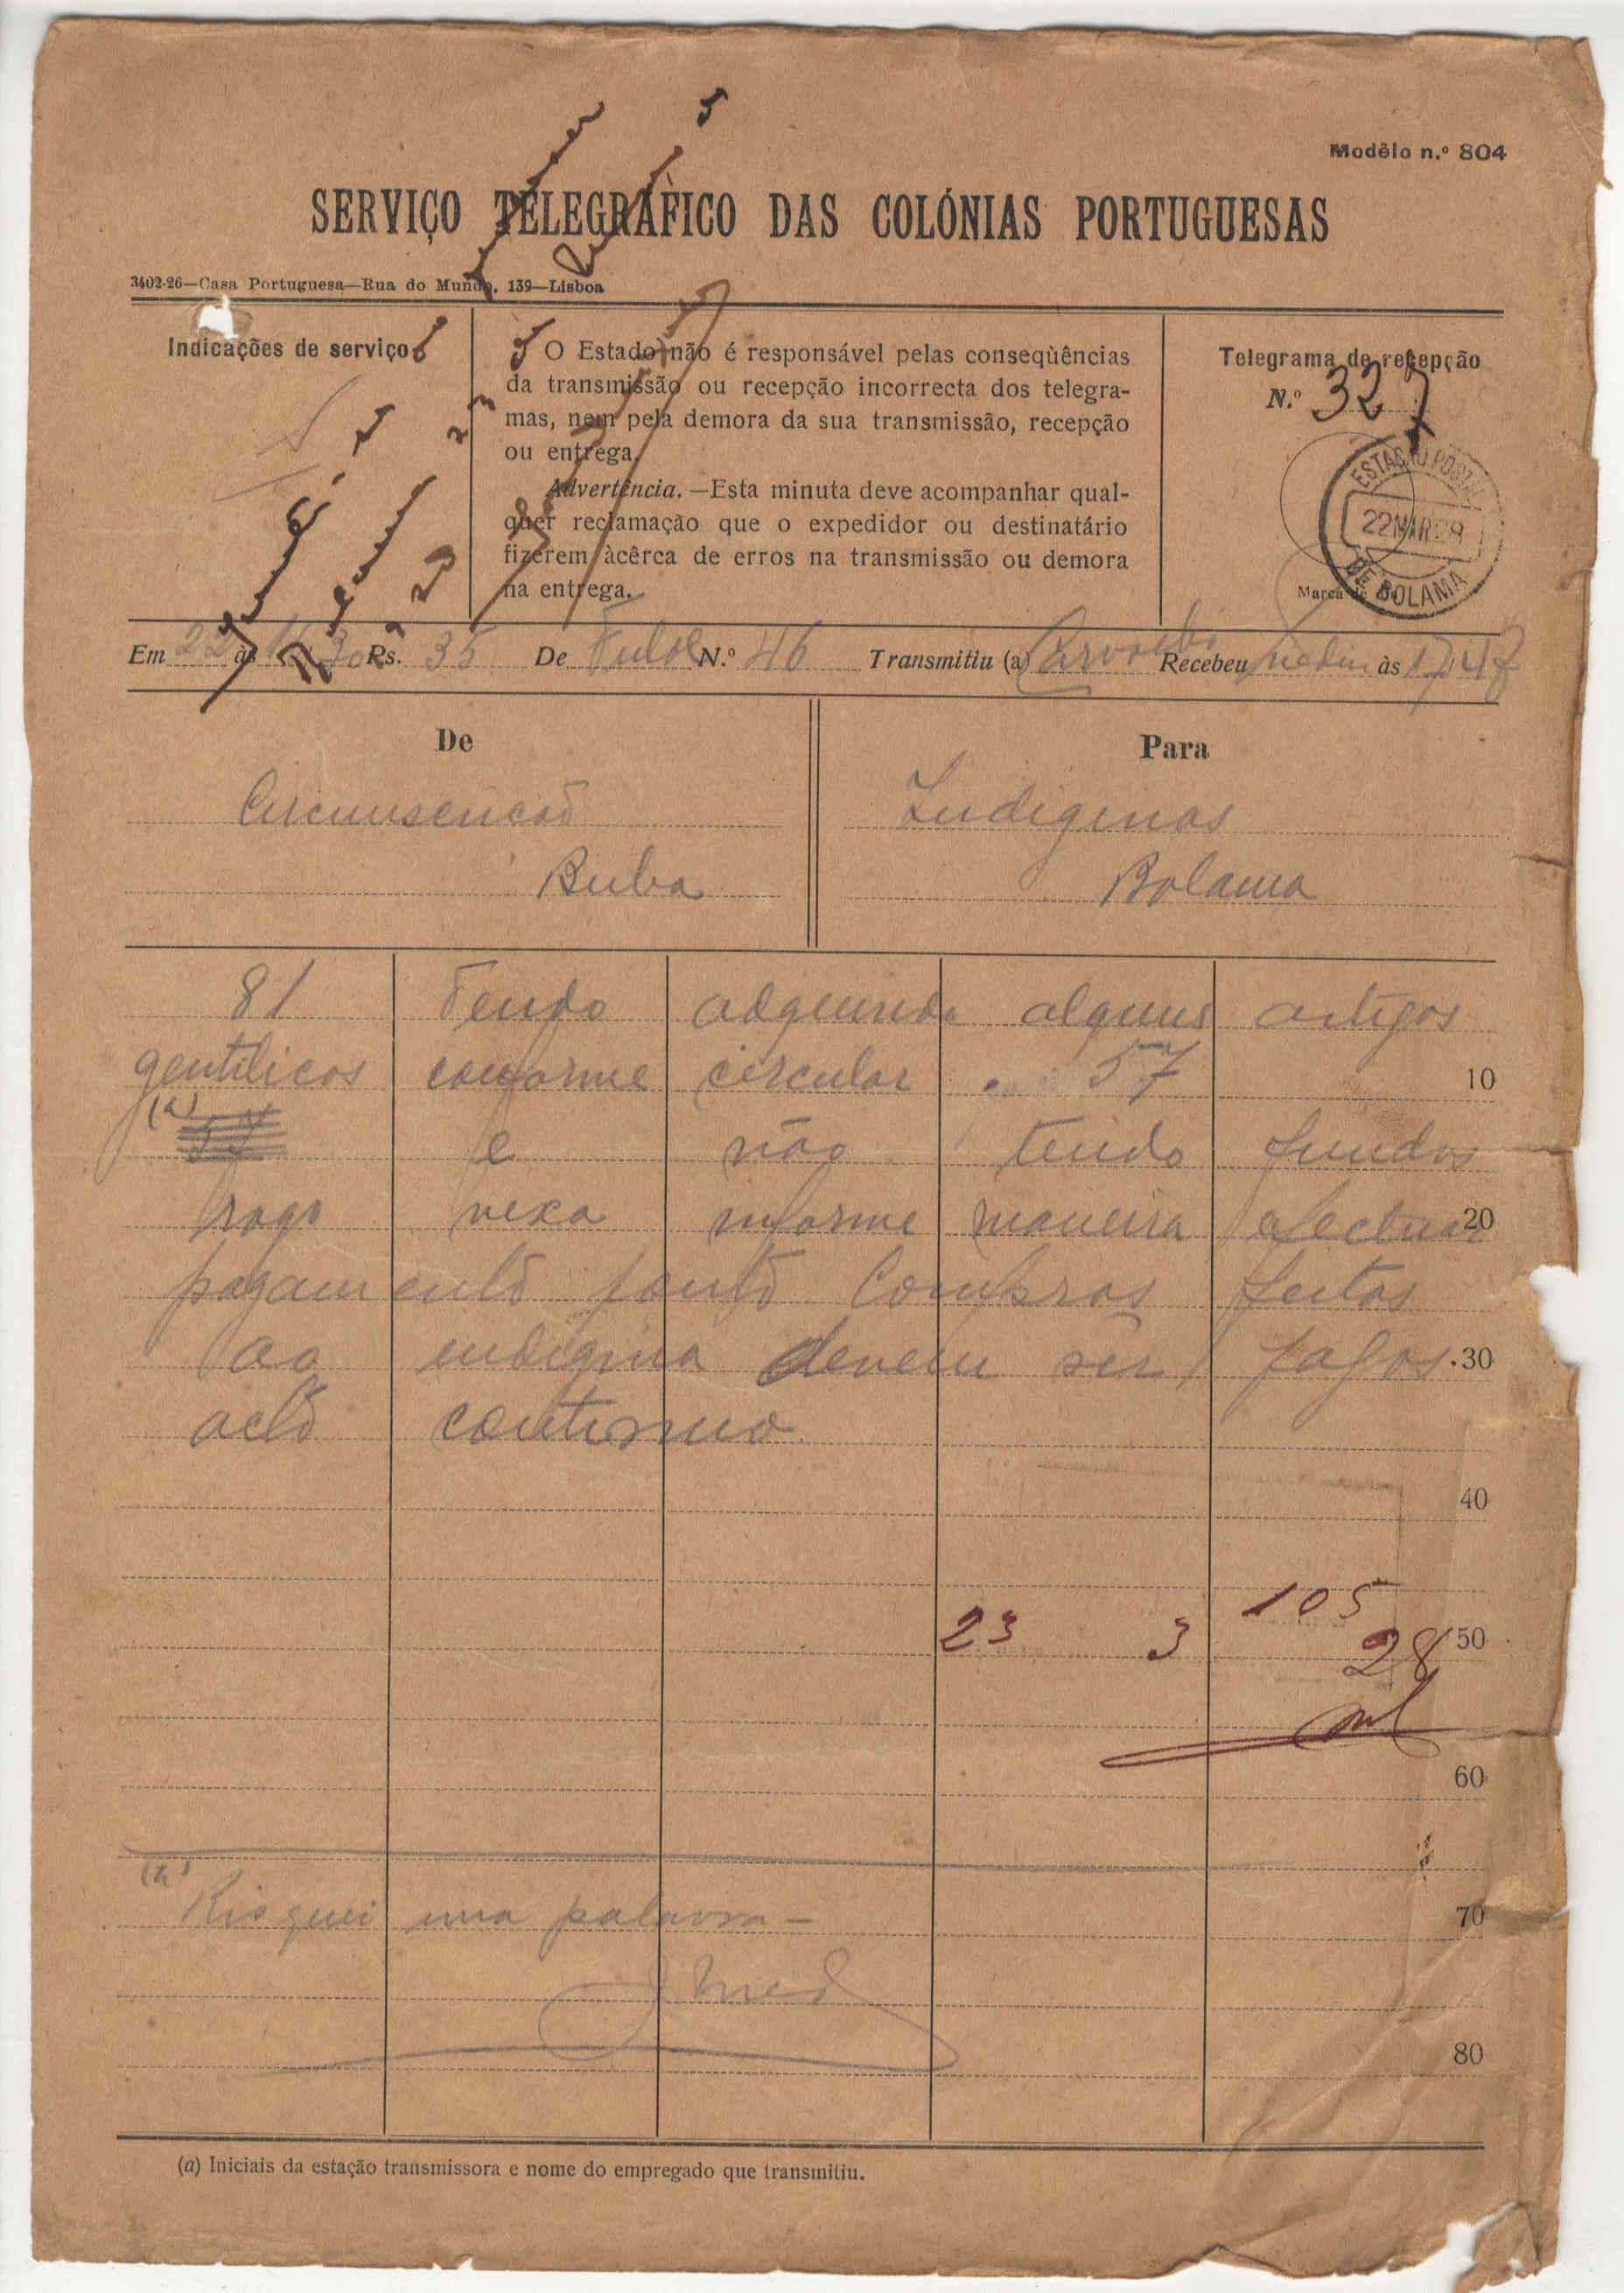 Modêlo n.º 804
SERVIÇO TELEGRÀFICO DAS COLÓNIAS PORTUGUESAS
3402-26—Casa Portuguesa—Rua do Mundo, 139—Lisboa
Indicações de serviço
O Estado não é responsável pelas conseqùências
da transmissão ou recepção incorrecta dos telegra-
mas, nem pela demora da sua transmissão, recepção
ou entrega.
Advertência.—Esta minuta deve acompanhar qual-
quer reclamação que o expedidor ou destinatário
fizerem àcêrca de erros na transmissão ou demora
na entrega.
Telegrama de recepção
N.º 327
ESTAÇÃO POSTAL
22 MAR 28
DE BOLAMA
Em 22 às 16 30 Ps. 35 De N.º 46 Transmitiu (a) Carvalho Recebeu às 17
De
Circunscricão
Buba
Para
Indiginas
Bolama
81 Tendo adquirido alguns artigos
gentilicos conforme circular 57 10
(a) e não tendo fundos
rogo vexa informe maneira efectuar 20
pagamento ponto Compras feitas
ao indigina devem ser pagos 30
actō continuo
40
105
23 3 28 50
60
(a)
Risquei uma palavra— 70
80
(a) Iniciais da estação transmissora e nome do empregado que transmitiu.